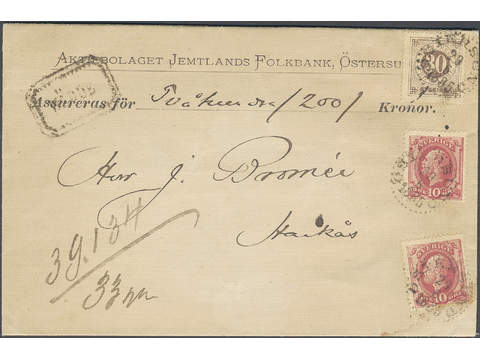 AKTIEBOLAGET JEMTLANDS FOLKBANK, ÖSTERSU
Assureras för Tvåhundra/200/ Kronor.
Herr J. Bromée
Hackås
39.134
33 gr
30
SVERIGE
10 ÖRE
SVERIGE
10 ÖRE